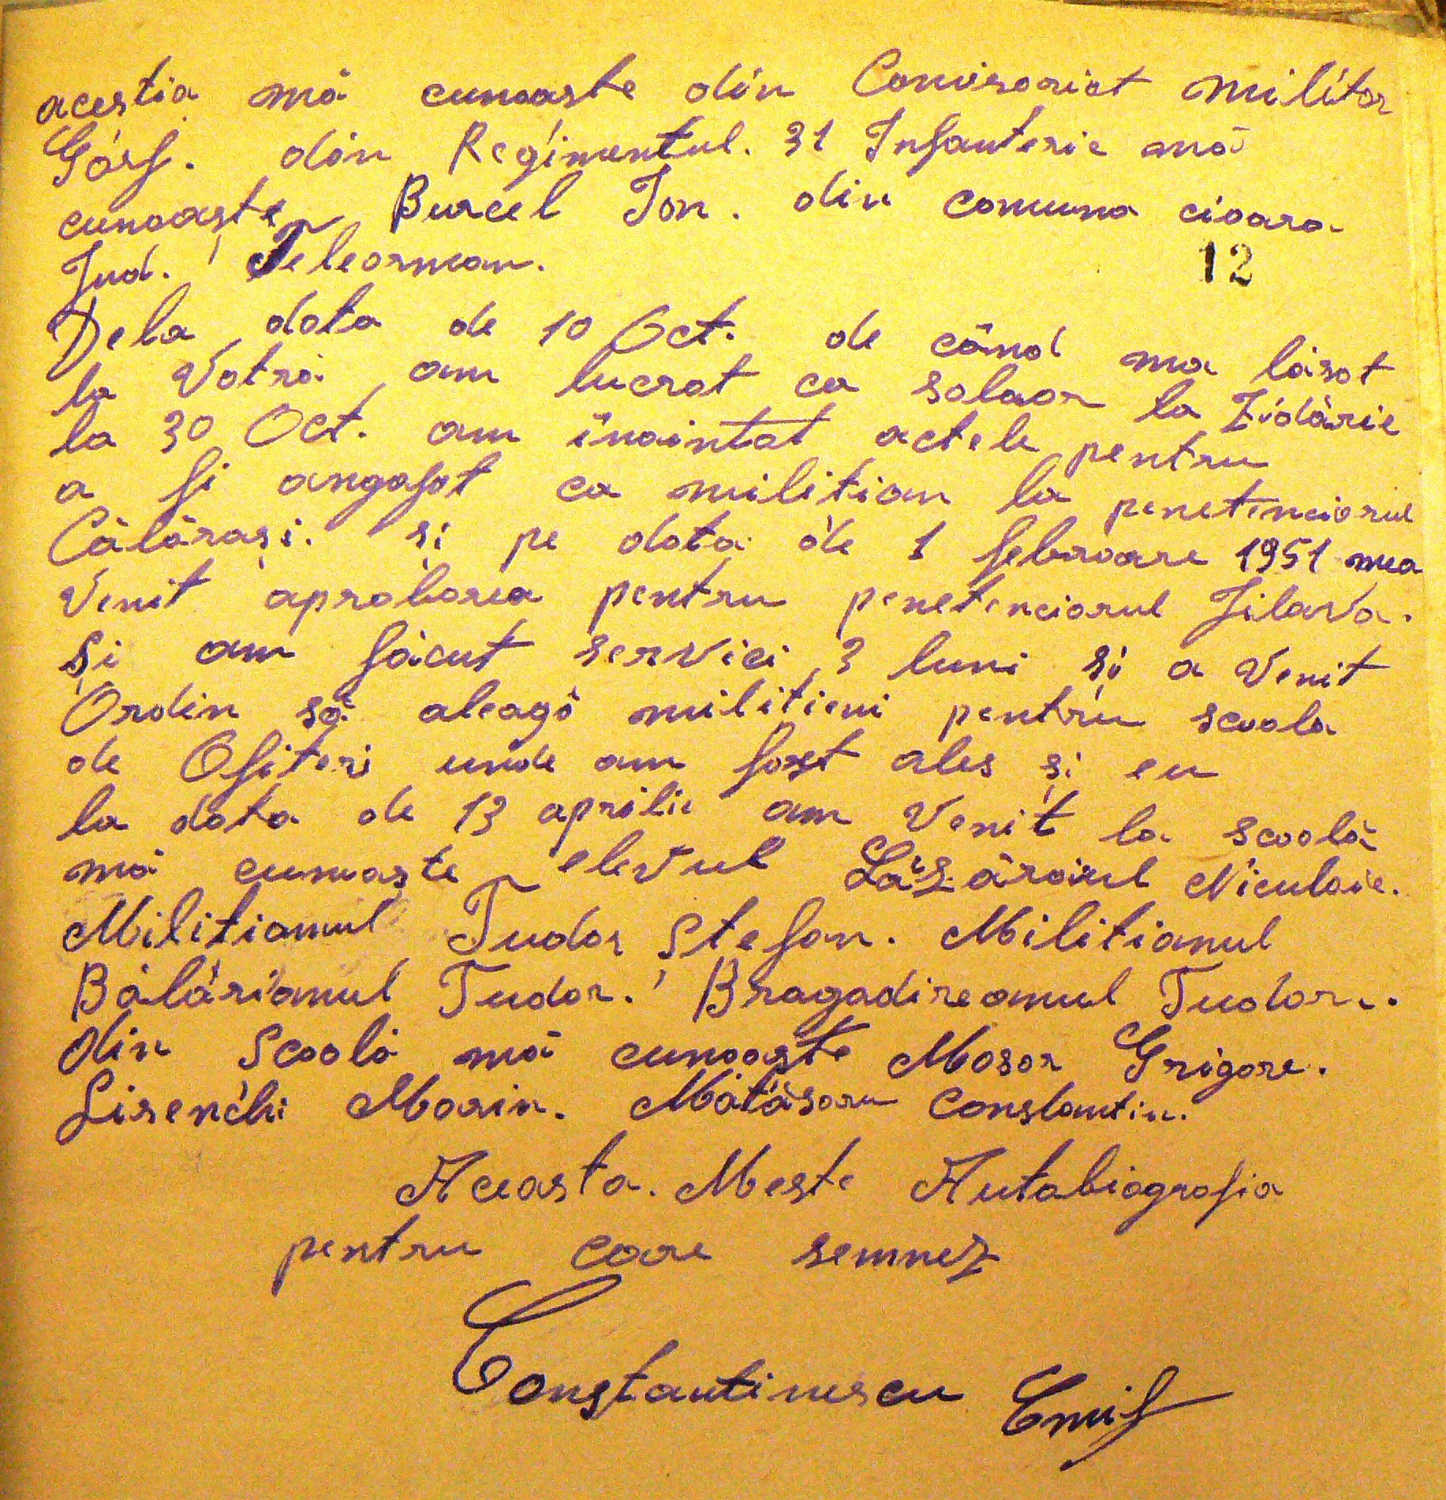 acestia mă cunoaste din Comisariat militar
Gorj. din Regimentul. 31 Infanterie mă
cunoaște Burcel Ion. din comuna cioara
Jud. Teleorman.
12
Dela data de 10 Oct. de când ma lăsat
la Vatră am lucrat ca salaor la Zidărie
la 30 Oct. am înaintat actele pentru
a fi angajat ca militian la penetenciarul
Călărași. și pe data de 1 febroare 1951 mea
Venit aprobarea pentru penetenciarul Jilava.
Și am făcut servici 3 luni și a Venit
Ordin să aleagă militieni pentru scoala
de Ofiteri unde am fost ales și eu
la data de 13 aprilie am Venit la scoală
mă cunoaște elevul Lăzăroiul Niculaie.
Militianul Tudor Ștefan. Militianul
Bălărianul Tudor. Bragadireanul Tudor..
din Scoală mă cunoaște Mosor Grigore.
Lisenchi Marin. Mătăsaru Constantin.
Aceasta. Meste Autobiografia
pentru care semnez
Constantinescu Emil